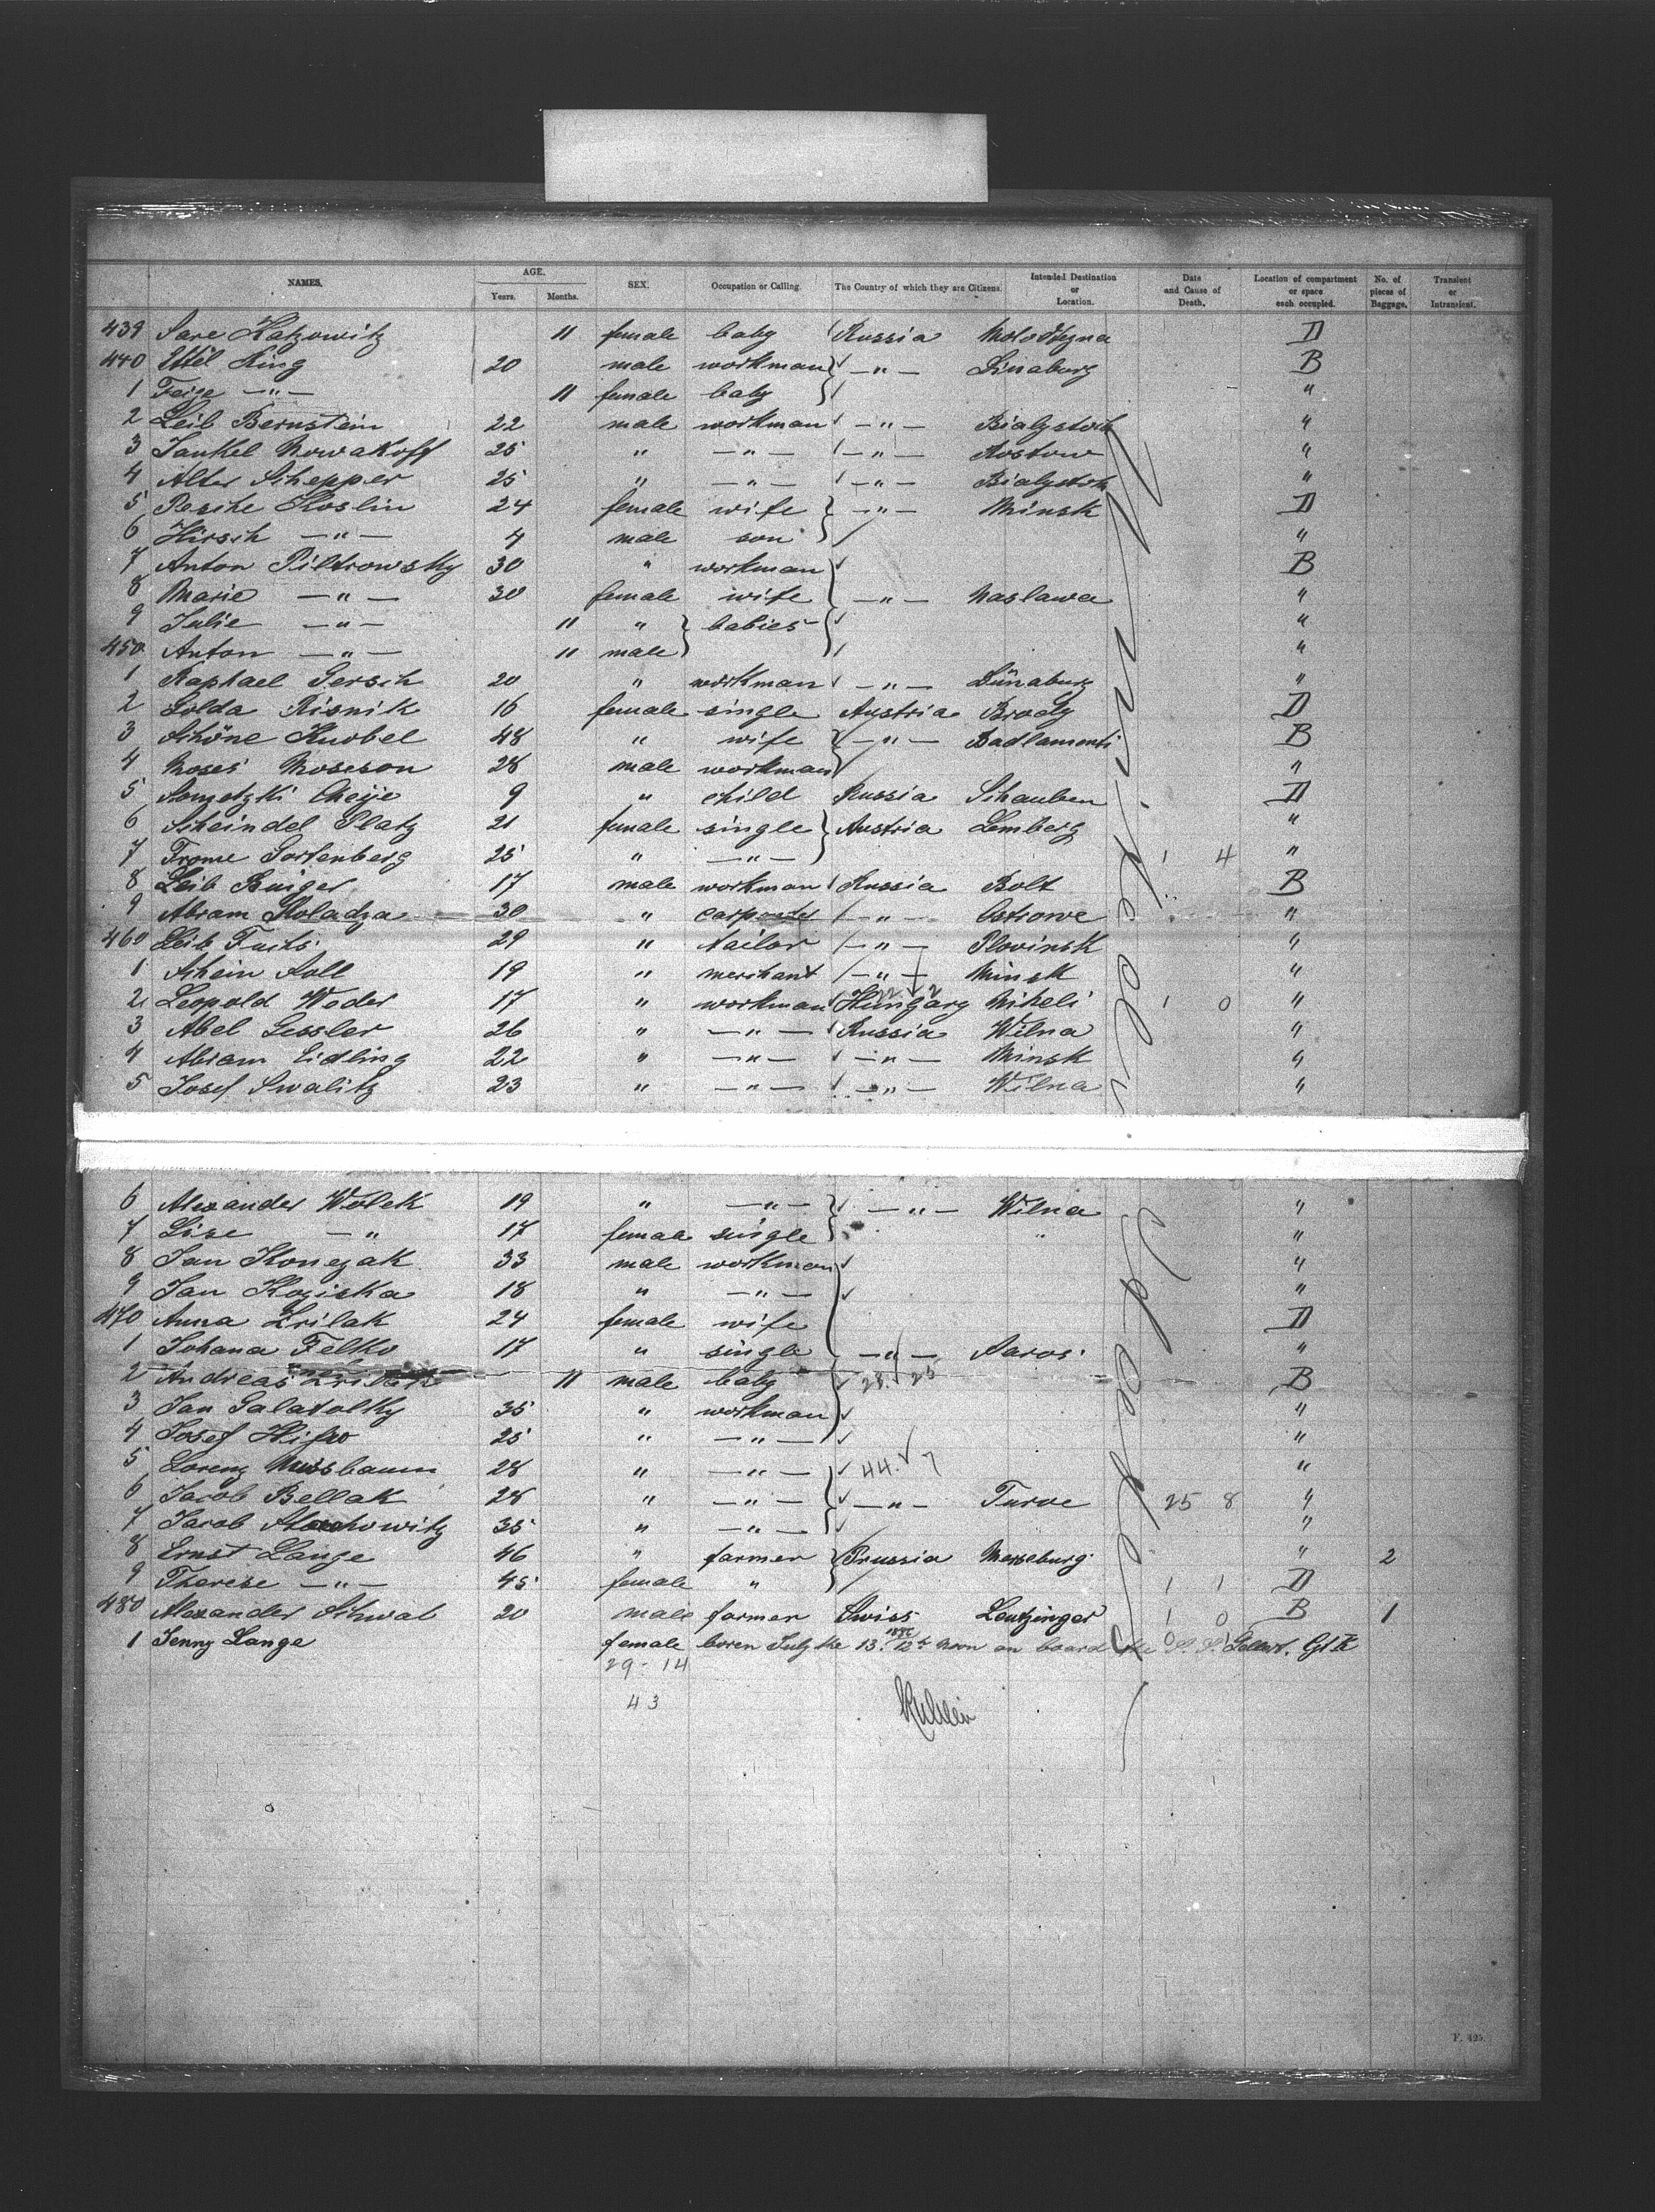 NAMES. AGE. Years. Months. SEX. Occupation or Calling. The Country of which they are Citizens. Intended Destination or Location. Date and Cause of Death. Location of compartment or space each occupied. No. of pieces of Baggage. Transient or Intransient.
439 Sare Katzowitz 11 female baby Russia D
440 Ettel King 20 male workman —"— Dinaburg B
1 Feige —"— 11 female baby "
2 Leib Bernstein 22 male workman —"— Bialystok "
3 Jankel Nowakoff 25 " —"— —"— Rostow "
4 Alter Schepper 25 " —"— —"— Bialystok "
5 Pesche Koslin 24 female wife —"— Minsk D
6 Hirsch —"— 4 male son "
7 Anton Piltrowsky 30 " workman B
8 Marie —"— 30 female wife —"— Naslawa "
9 Julie —"— 11 " babies "
450 Anton —"— 11 male "
1 Raphael Gersch 20 " workman —"— Dünaburg "
2 Golda Risnik 16 female single Austria Brody D
3 Schöne Knobel 48 " wife —"— Badlamenti B
4 Moses Moseson 28 male workman "
5 Sometzki Cheije 9 " child Russia Schauben D
6 Scheindel Platz 21 female single Austria Lemberg "
7 Frome Gortenberg 25 " —"— 1 4 "
8 Leib Buiger 17 male workman Russia Bolt B
9 Abram Koladza 30 " carpenter —"— Ostrowe "
460 Leib Fuchs 29 " tailor —"— Plowinsk "
1 Schein Soll 19 " merchant —"— Minsk "
2 Leopold Weder 17 " workman Hungary Miheli 1 0 "
3 Abel Gessler 26 " —"— Russia Wilna "
4 Abram Eidling 22 " —"— —"— Minsk "
5 Josef Swalitz 23 " —"— —"— Wilna "
6 Alexander Wolek 19 " —"— —"— Wilna "
7 Lise —" 17 female single " "
8 Jan Konezak 33 male workman "
9 Jan Koziska 18 " —"— "
470 Anna Zrilak 24 female wife D
1 Johana Felko 17 " single —"— Saros "
2 Andreas Zrilak 11 male baby 28 25 B
3 Jan Galatolky 35 " workman "
4 Josef 25 " —"— "
5 Lorenz Nussbaum 28 " —"— 44 7 "
6 Jacob Bellak 28 " —"— —"— Turoe 25 8 "
7 Jacob 35 " —"— "
8 Ernst Lange 46 " farmer Prussia Merseburg " 2
9 Therese —"— 45 female " 1 1 D
480 Alexander Schwab 20 male farmer Swiss Leutzinger 1 0 B 1
1 Jenny Lange female boren July the 13. 12h Noon on board the S.S. Gellert.
29 - 14
43
F. 425.